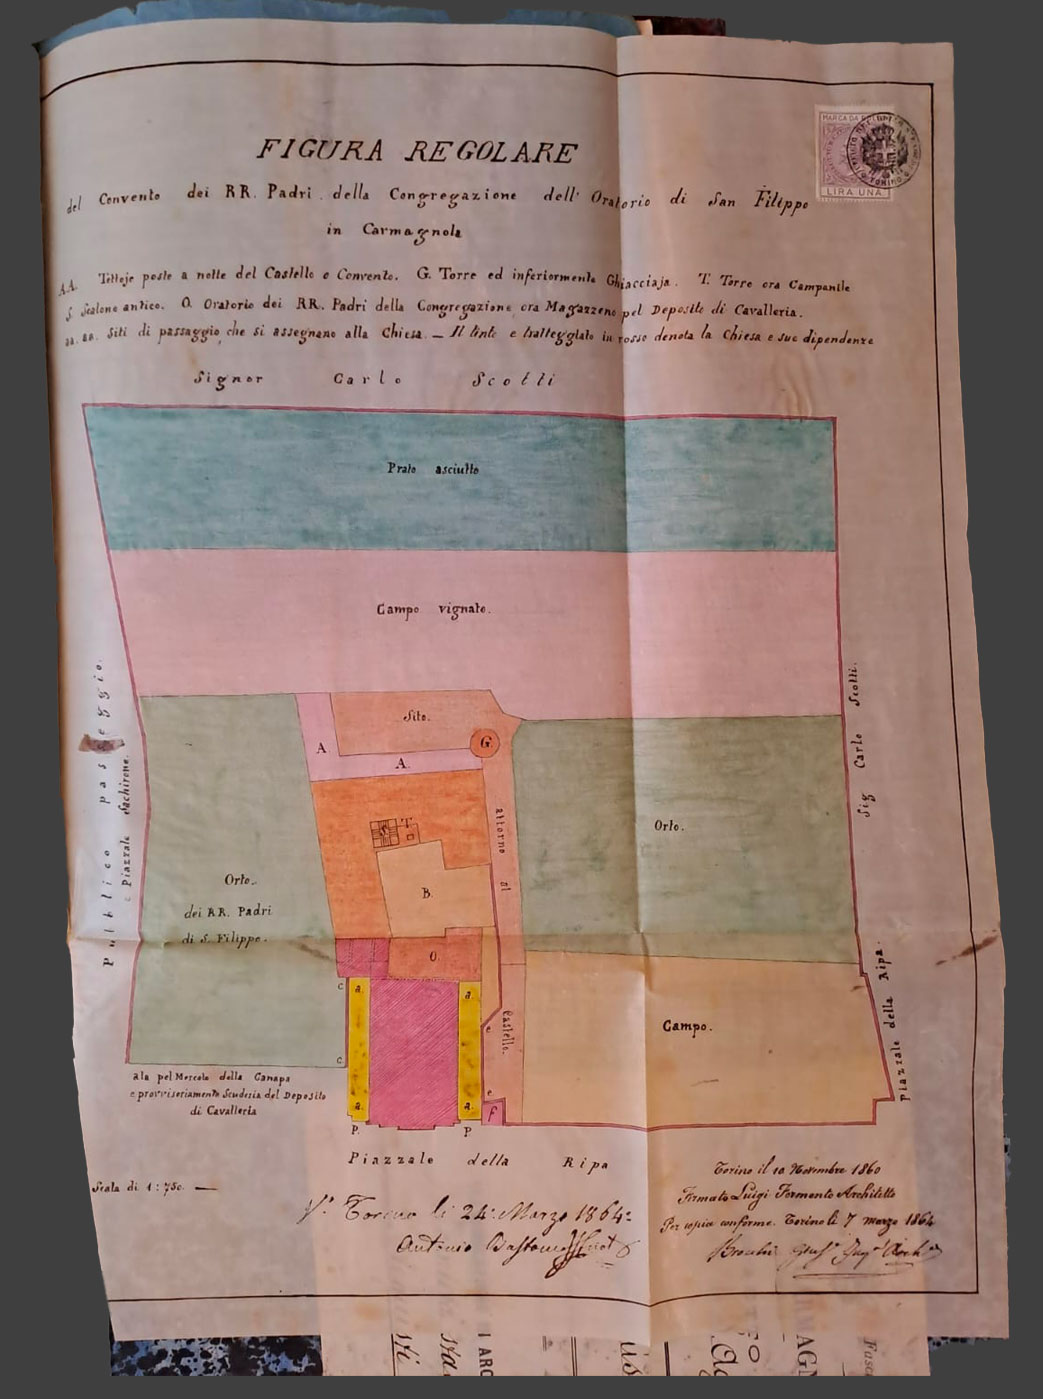 FIGURA REGOLARE
MARCA DA
LIRA UNA
del Convento dei RR. Padri della Congregazione dell' Oratorio di San Filippo
in Carmagnola
AA. Tettoje poste a notte del Castello e Convento. G. Torre ed inferiormente Ghiacciaja. T. Torre ora Campanile
S. Scalone antico. O. Oratorio dei RR. Padri della Congregazione ora Magazzeno pel Deposito di Cavalleria.
aa. aa. Siti di passaggio che si assegnano alla Chiesa. _ Il tinto e tratteggiato in rosso denota la Chiesa e sue dipendenze
Signor Carlo Scotti
Prato asciutto
Campo vignato.
Sito.
A
A.
G.
S
T
B.
O
attorno al
Castello.
Orto.
Orto.
dei RR. Padri
di S. Filippo.
Campo.
Pubblico passeggio.
e Piazzale
Sig Carlo Scotti.
Piazzale della Ripa.
c
c
a.
a.
a.
a.
e
e
f
P.
P.
Ala pel Mercato della Canapa
e provvisoriamente Scuderia del Deposito
di Cavalleria
Piazzale della Ripa
Scala di 1:750.
V° Torino li 24 Marzo 1864
Antonio
Torino il 10 Novembre 1860
Firmato Luigi Formento Architetto
Per copia conforme. Torino li 7 marzo 1864